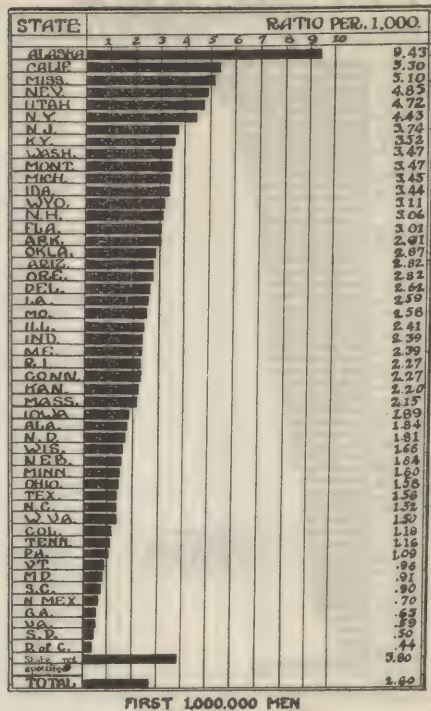 STATE RATIO PER. 1,000.
1 2 3 4 5 6 7 8 9 10
ALASKA 9.43
CALIF 5.30
MISS. 5.10
NEV. 4.85
UTAH 4.72
N.Y. 4.43
N.J. 3.74
KY. 3.52
WASH. 3.47
MONT. 3.47
MICH. 3.45
IDA. 3.44
WYO. 3.11
N.H. 3.06
FLA. 3.01
ARK. 2.91
OKLA. 2.87
ARIZ. 2.82
ORE. 2.82
DEL. 2.62
LA. 2.59
MO. 2.58
ILL. 2.41
IND. 2.39
ME. 2.39
R.I. 2.27
CONN. 2.27
KAN. 2.20
MASS. 2.15
IOWA 1.89
ALA. 1.84
N.D. 1.81
WIS. 1.66
NEB. 1.64
MINN. 1.60
OHIO. 1.58
TEX. 1.56
N.C. 1.52
W.VA. 1.50
COL. 1.18
TENN. 1.16
PA. 1.09
VT. .96
MD. .91
S.C. .90
N MEX .70
GA. .63
VA. .59
S.D. .50
D. of C. .44
State not
specified 3.80
TOTAL 2.60
FIRST 1,000,000 MEN